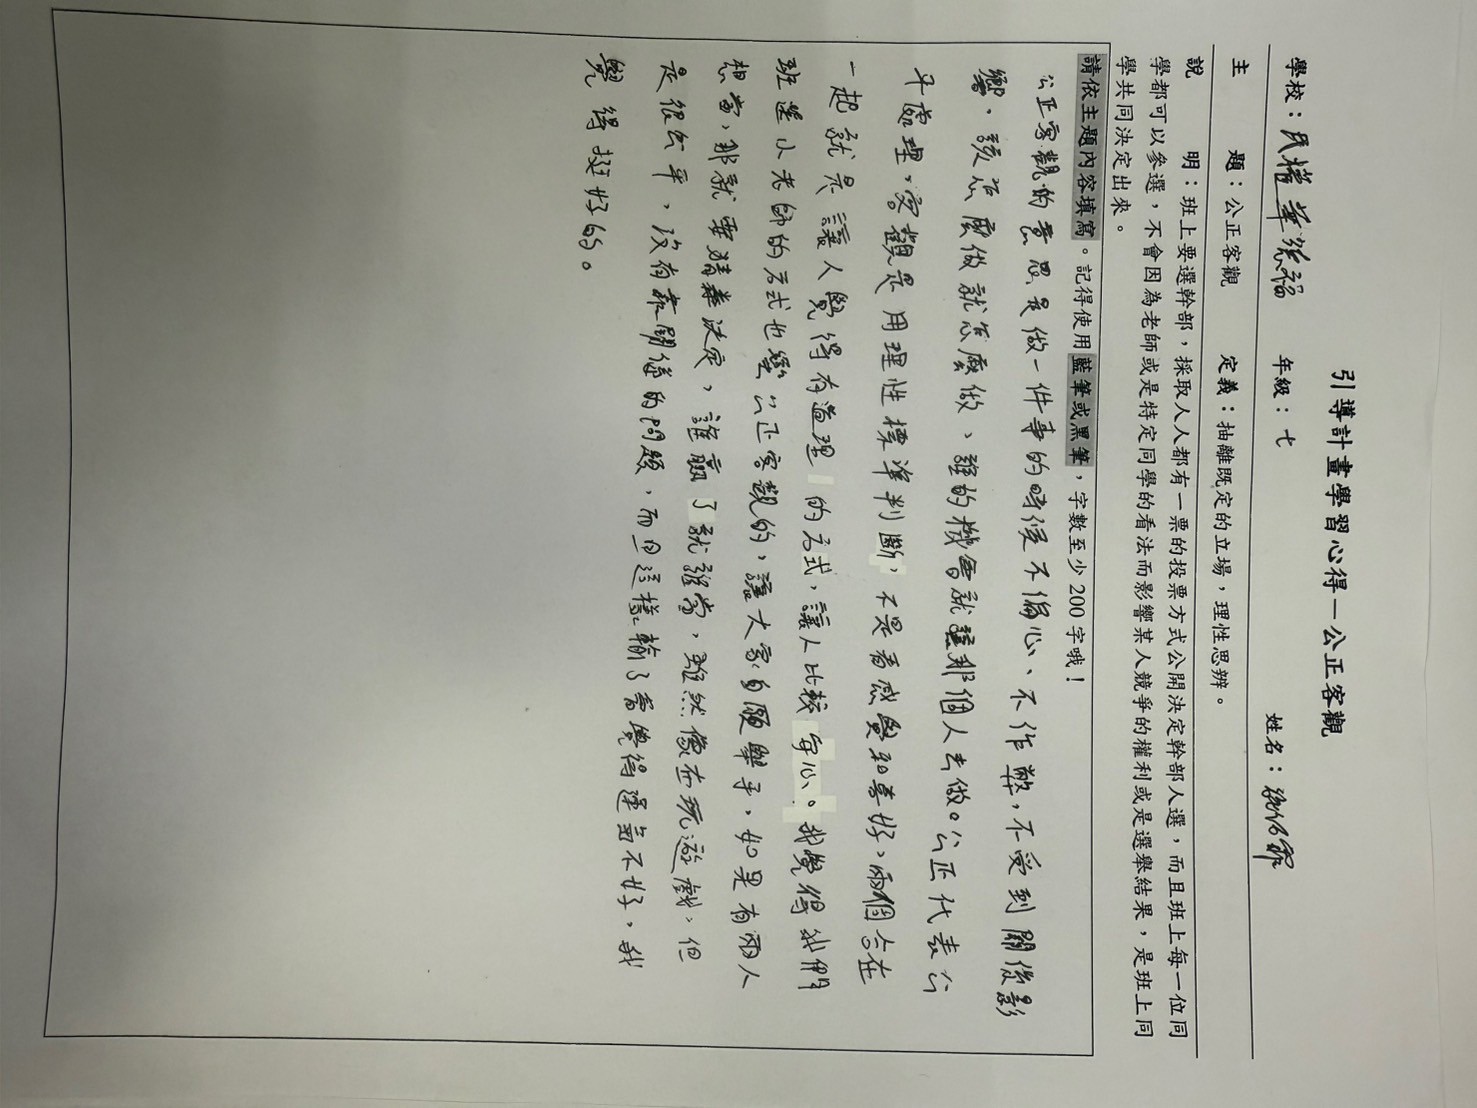 引導計畫學習心得－公正客觀
學校：民權華德福 年級：七 姓名：
主 題：公正客觀 定義：抽離既定的立場，理性思辨。
說 明：班上要選幹部，採取人人都有一票的投票方式公開決定幹部人選，而且班上每一位同
學都可以參選，不會因為老師或是特定同學的看法而影響某人競爭的權利或是選舉結果，是班上同
學共同決定出來。
請依主題內容填寫。記得使用藍筆或黑筆，字數至少200字哦！
公正客觀的意思是做一件事的時候不偏心、不作弊，不受到關係影
響，該怎麼做就怎麼做、誰的機會就讓那個人去做。公正代表公
平處理，客觀是用理性標準判斷，不是看感覺和喜好，兩個合在
一起就是讓人覺得有道理的方式，讓人比較安心。我覺得我們
班選小老師的方式也蠻公正客觀的，讓大家自願舉手，如果有兩人
想當，那就要猜拳決定，誰贏了就誰當，雖然像在玩遊戲，但
是很公平，沒有靠關係的問題，而且這樣輸了會覺得運氣不好，我
覺得挺好的。